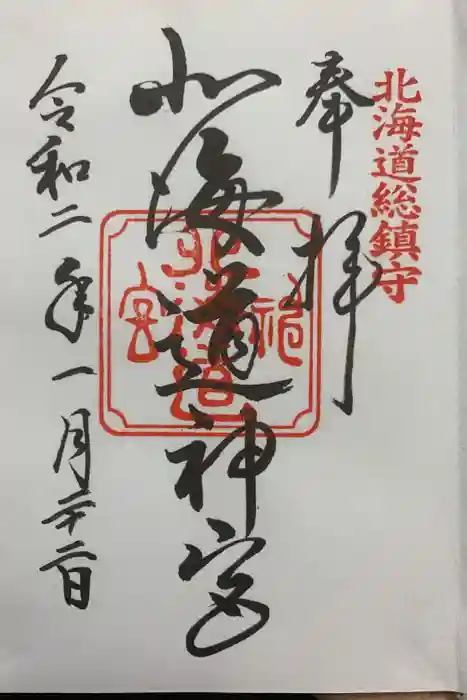 北海道総鎮守
奉拝
北海道神宮
北海道
神
宮
令和二年一月二十二日